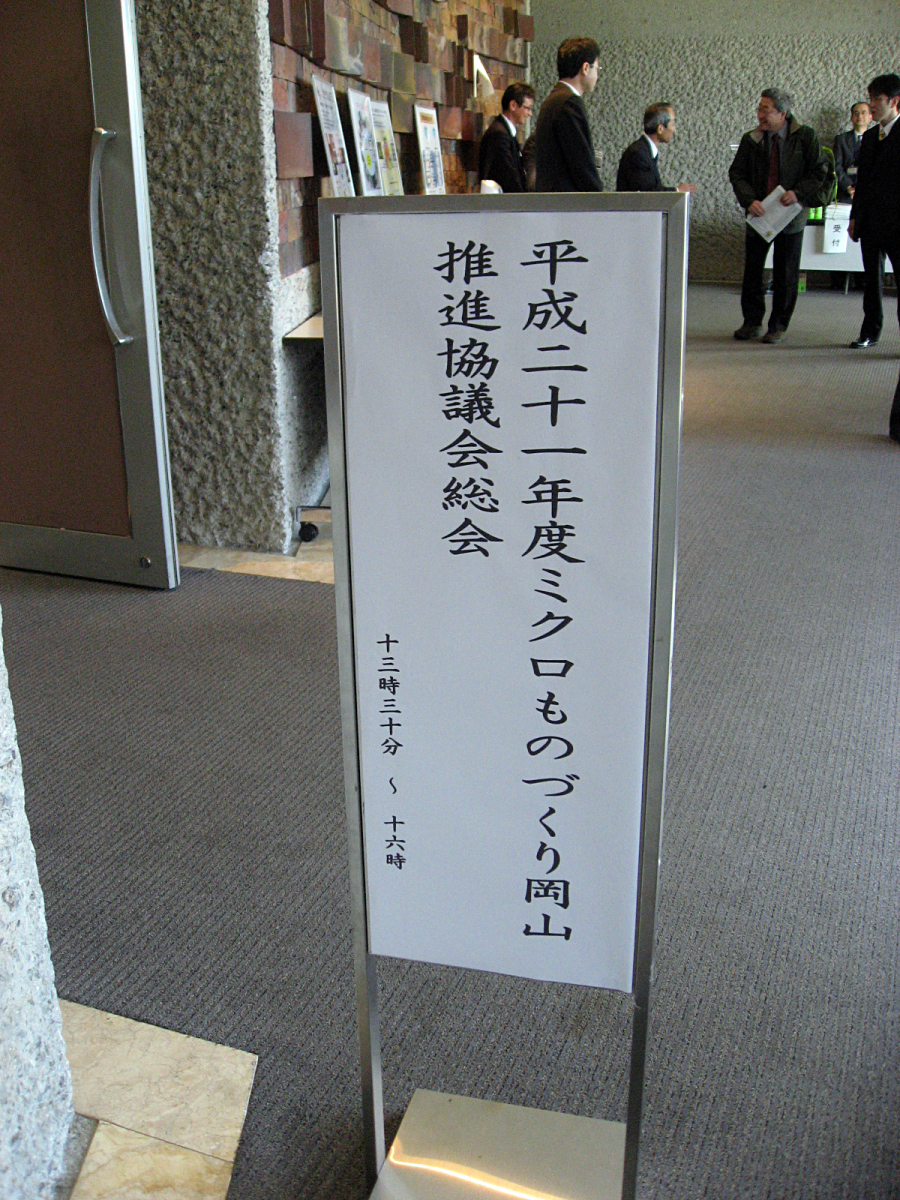 平成二十一年度ミクロものづくり岡山
推進協議会総会
十三時三十分 ～ 十六時
受付